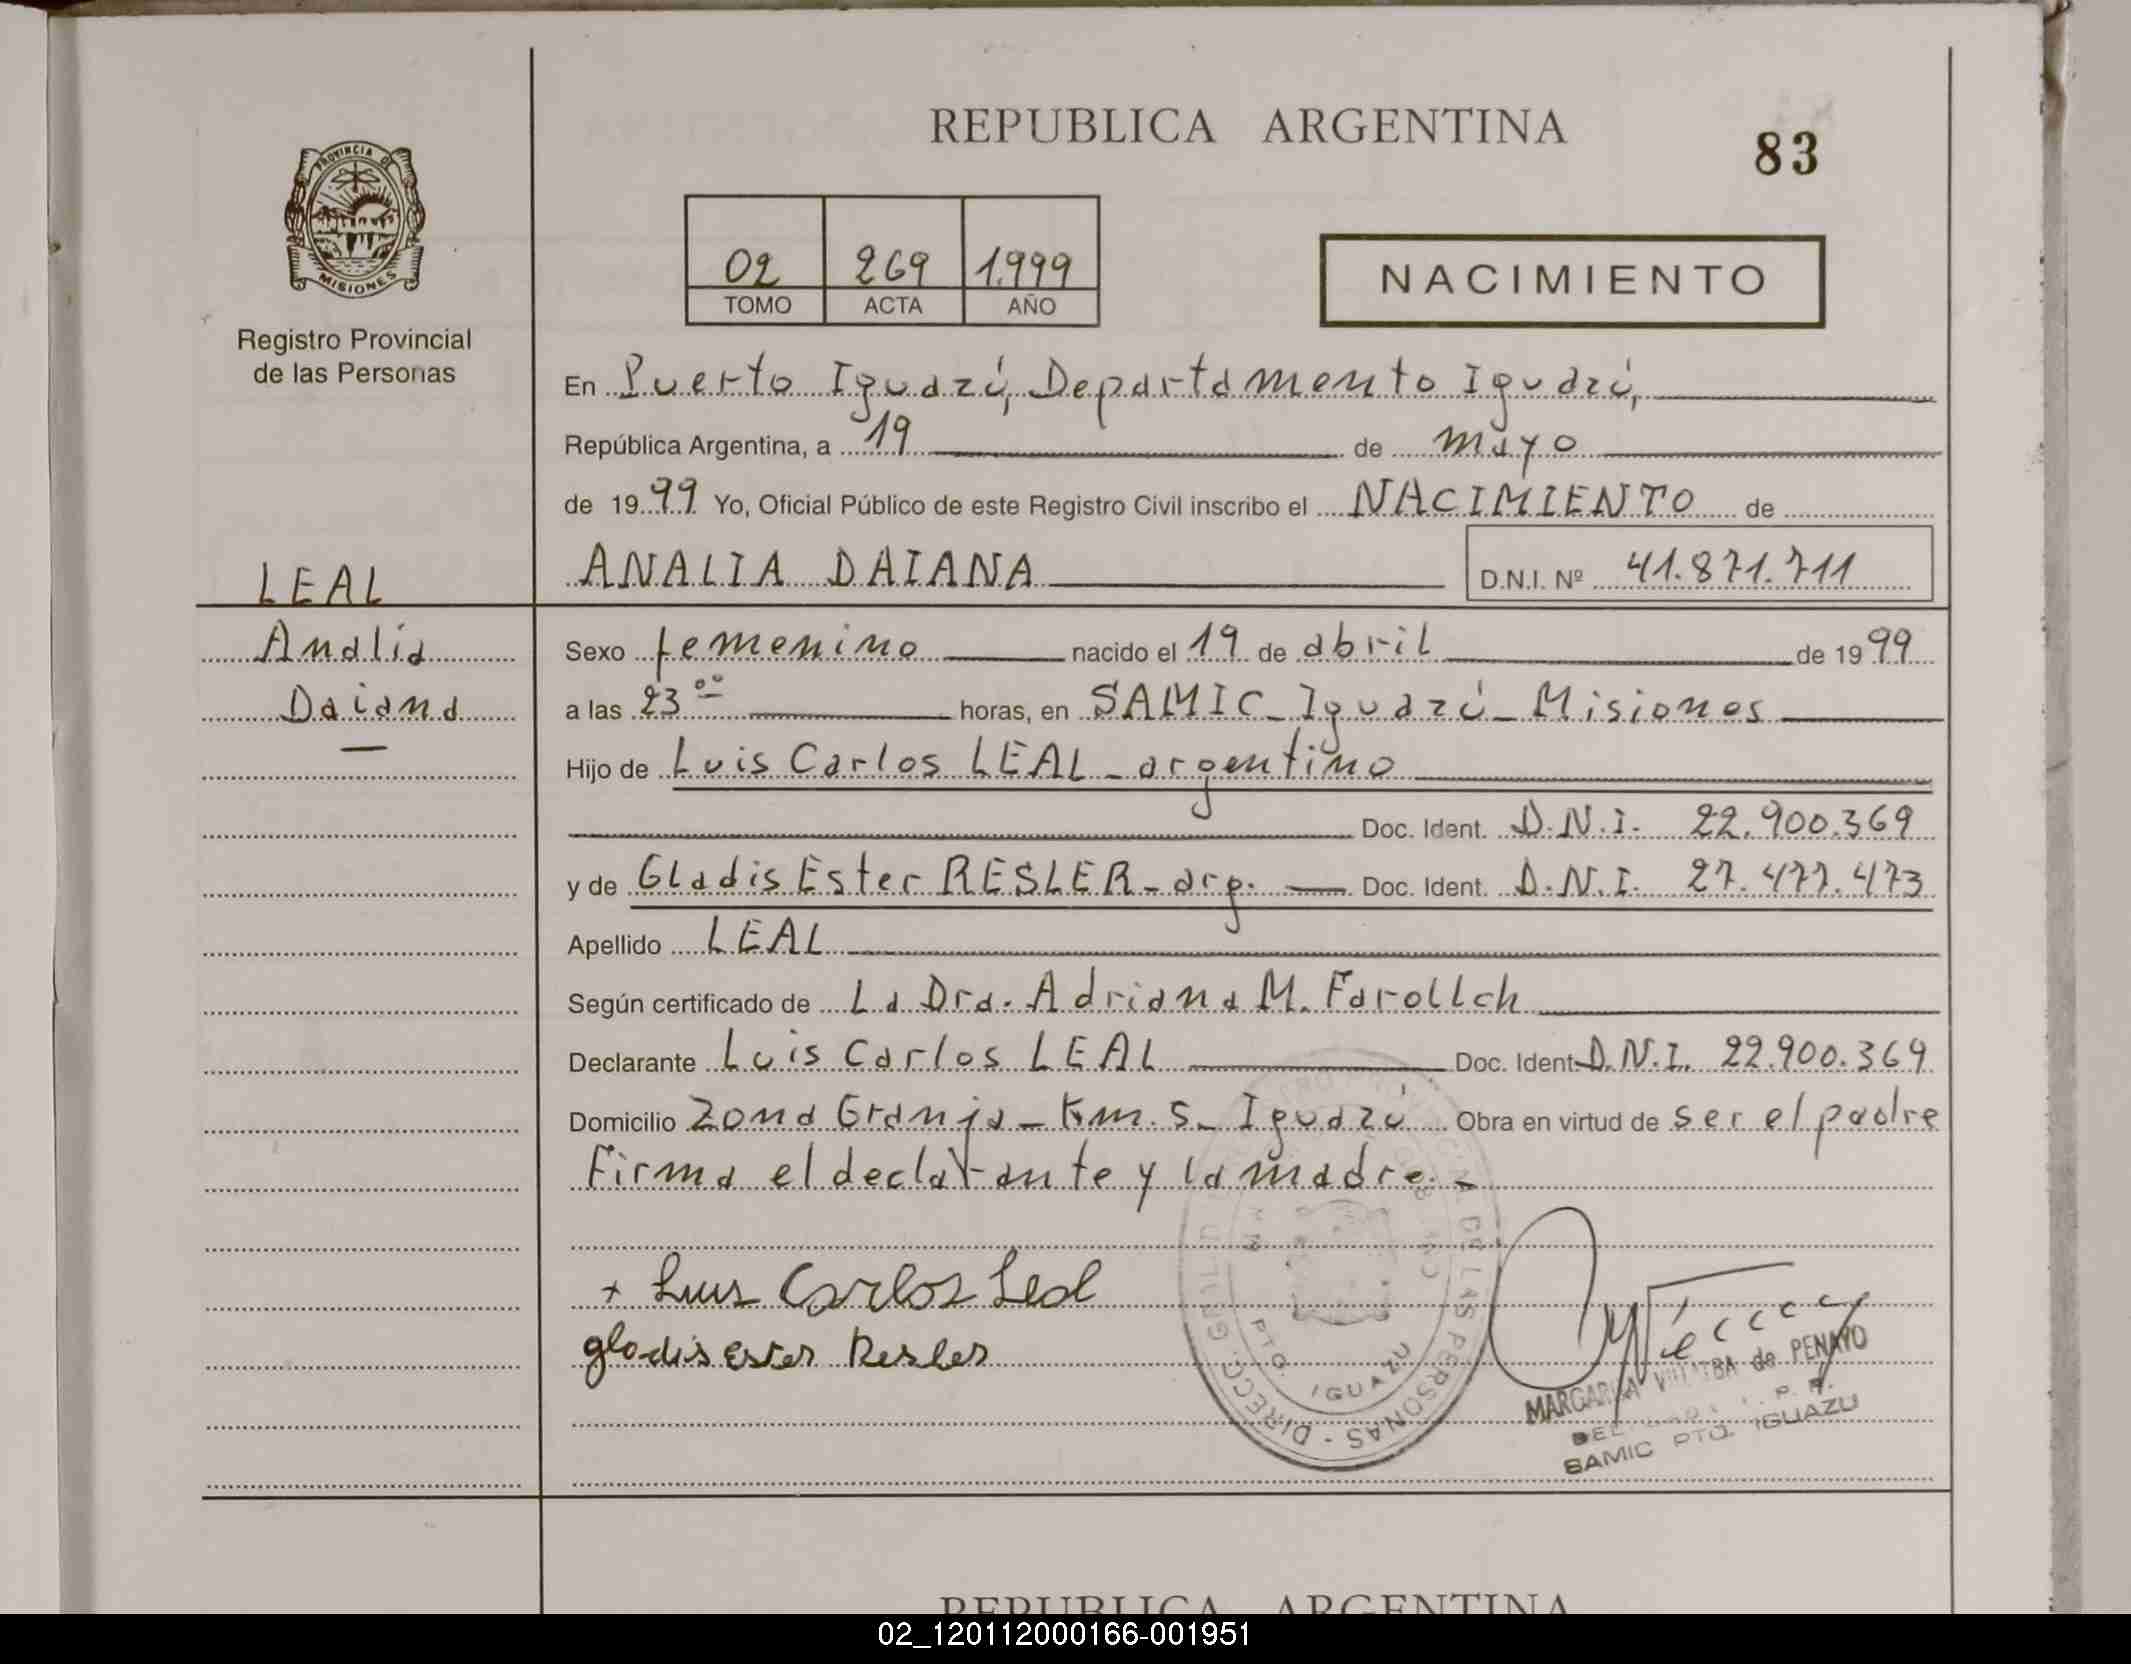 REPUBLICA ARGENTINA
83
PROVINCIA DE
MISIONES
Registro Provincial
de las Personas
02 269 1.999
TOMO ACTA AÑO
NACIMIENTO
En Puerto Iguazú, Departamento Iguazú,
República Argentina, a 19 de mayo
de 1999 Yo, Oficial Público de este Registro Civil inscribo el NACIMIENTO de
ANALIA DAIANA D.N.I. Nº 41.871.711
LEAL
Analia
Daiana
Sexo femenino nacido el 19 de abril de 1999
a las 23 00 horas, en SAMIC - Iguazú - Misiones
Hijo de Luis Carlos LEAL - argentino
Doc. Ident. D.N.I. 22.900.369
y de Gladis Ester RESLER - arg. Doc. Ident. D.N.I. 27.477.473
Apellido LEAL
Según certificado de La Dra. Adriana M. Farollch
Declarante Luis Carlos LEAL Doc. Ident D.N.I. 22.900.369
Domicilio Zona Granja - Km. 5 - Iguazú Obra en virtud de ser el padre
Firma el declarante y la madre. -
+ Luis Carlos Leal
gladis Ester Resler
DIRECC. GRAL. DE LAS PERSONAS
PTO. IGUAZU
MARGARITA VILLALBA de PENAYO
SAMIC PTO. IGUAZU
REPUBLICA ARGENTINA
02_120112000166-001951